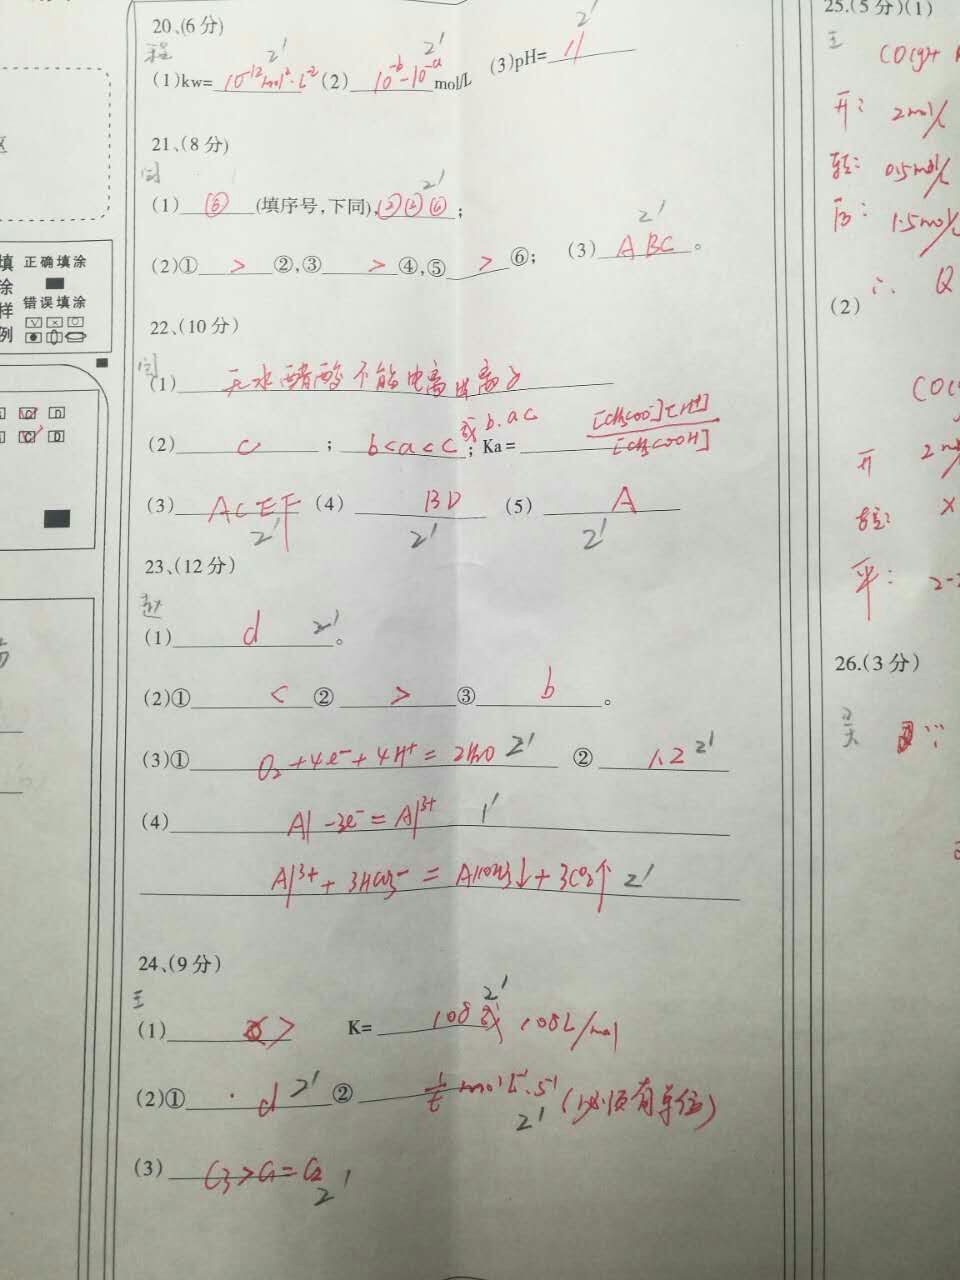 20、(6分)
程
(1)kw= 10⁻¹²mol²·L⁻² 2' (2) 10⁻ᵇ-10⁻ᵃ mol/L 2' (3)pH= 11 2'
21、(8分)
(1) ⑥ (填序号,下同), ②④⑥ 2' ;
(2)① > ②,③ > ④,⑤ > ⑥; (3) ABC 2' 。
22、(10分)
(1) 无水醋酸不能电离出离子
(2) c ; b<a<c 或 b.a.c ; Ka= [CH₃COO⁻][H⁺]/[CH₃COOH]
(3) ACEF 2' (4) BD 2' (5) A 2'
23、(12分)
赵
(1) d 2' 。
(2)① < ② > ③ b 。
(3)① O₂+4e⁻+4H⁺=2H₂O 2' ② 1.2 2'
(4) Al-3e⁻=Al³⁺ 1'
Al³⁺+3HCO₃⁻=Al(OH)₃↓+3CO₂↑ 2'
24、(9分)
王
(1) > K= 108或 108L/mol 2'
(2)① d 2' ② 1/t mol·L⁻¹·s⁻¹ (必须有单位) 2'
(3) C₃>C₁=C₂ 2'
填
涂
样
例
正确填涂
错误填涂
25.(5分)(1)
王
CO(g)+
开: 2mol/L
转: 0.5mol/L
平: 1.5mol/L
∴ Q
(2)
CO(g)
开 2m
转: x
平: 2-
26.(3分)